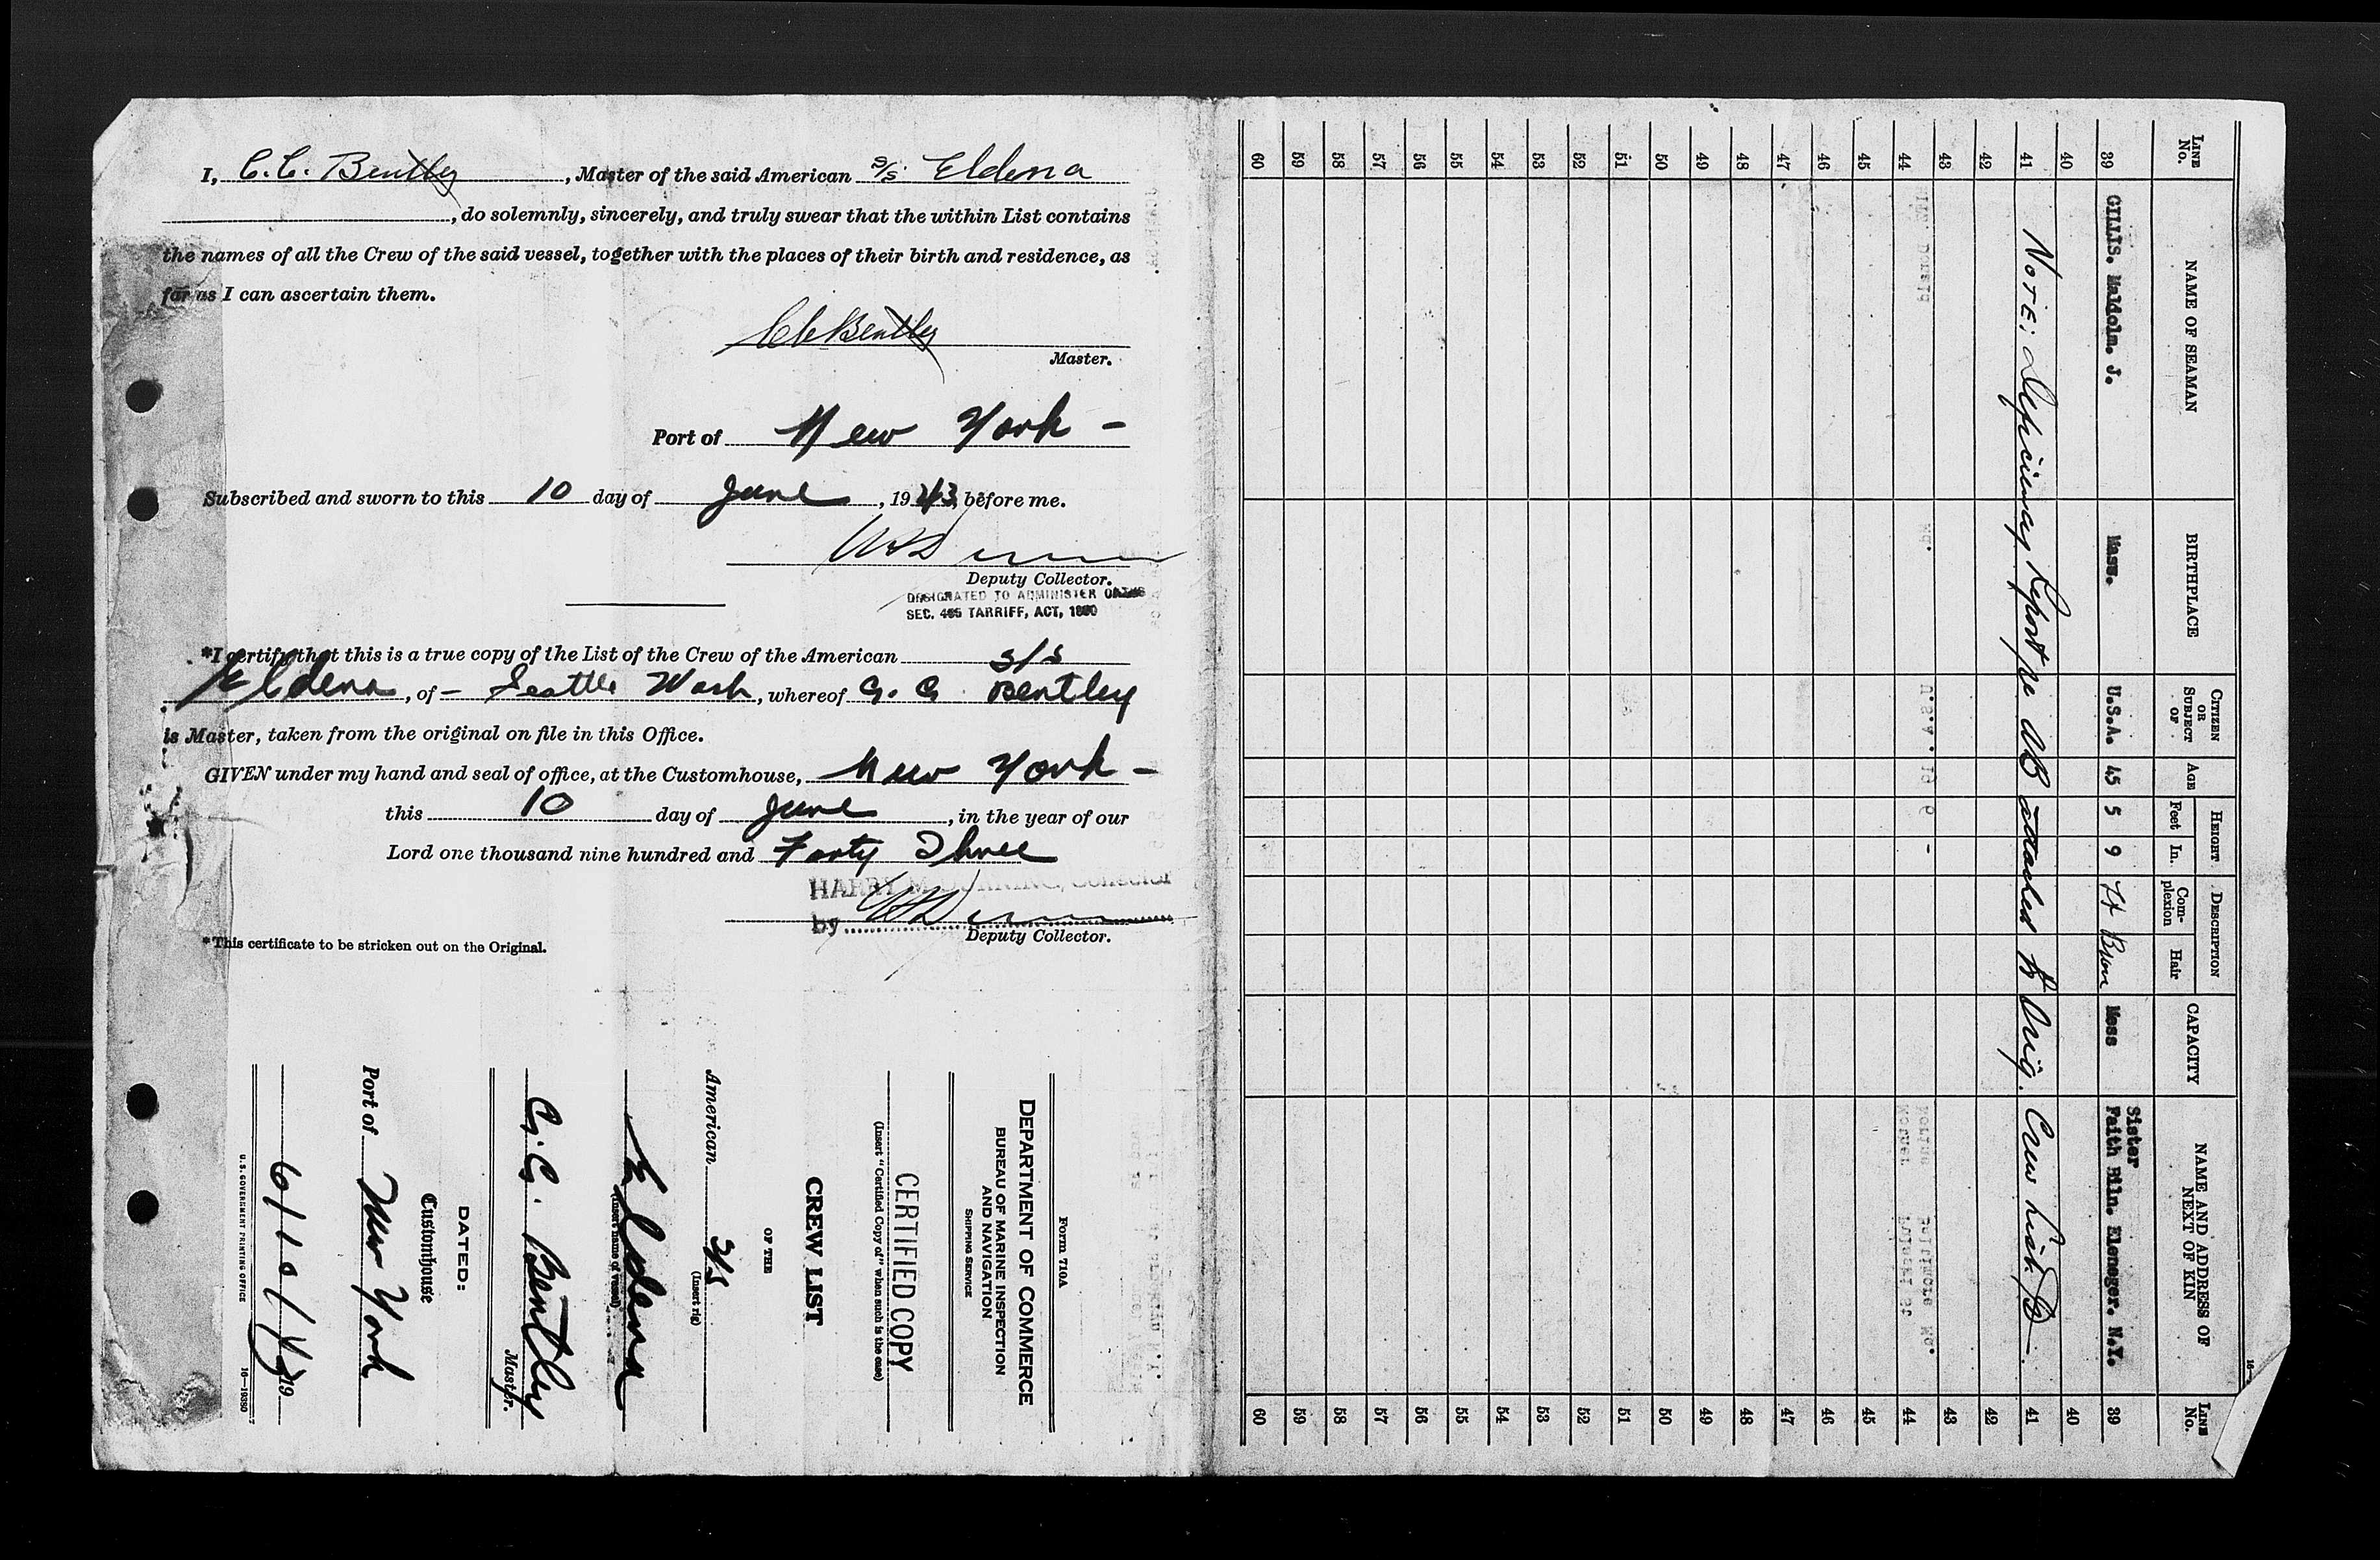 I, C. C. Bentley, Master of the said American S/S Eldena
, do solemnly, sincerely, and truly swear that the within List contains
the names of all the Crew of the said vessel, together with the places of their birth and residence, as
far as I can ascertain them.
CC Bentley
Master.
Port of New York -
Subscribed and sworn to this 10 day of June, 1943, before me.
Deputy Collector.
DESIGNATED TO ADMINISTER OATHS
SEC. 465 TARRIFF, ACT, 1930
*I certify that this is a true copy of the List of the Crew of the American S/S
Eldena, of - Seattle Wash, whereof G. G. Bentley
is Master, taken from the original on file in this Office.
GIVEN under my hand and seal of office, at the Customhouse, New York -
this 10 day of June, in the year of our
Lord one thousand nine hundred and Forty Three
HARRY M. DURNING, Collector
by
Deputy Collector.
*This certificate to be stricken out on the Original.
Form 710A
DEPARTMENT OF COMMERCE
BUREAU OF MARINE INSPECTION
AND NAVIGATION
SHIPPING SERVICE
CERTIFIED COPY
(Insert "Certified Copy of" when such is the case)
CREW LIST
OF THE
American S/S
(Insert rig)
Eldena
(Insert name of vessel)
G. G. Bentley
Master.
DATED:
Customhouse
Port of New York
6/10/43 19
U. S. GOVERNMENT PRINTING OFFICE 16—19380
LINE No. NAME OF SEAMAN BIRTHPLACE CITIZEN OR SUBJECT OF AGE HEIGHT Feet In. DESCRIPTION Complexion Hair CAPACITY NAME AND ADDRESS OF NEXT OF KIN LINE No.
Sister
39 GILLIS. Malcolm. J. Mass. U.S.A. 45 5 9 Lt Brown Mess Faith Miln. Elenoger. N.Y. 39
40 40
41 NOTE: Deficiency Report re AB attached to Orig. Crew List 41
42 42
43 43
44 44
45 45
46 46
47 47
48 48
49 49
50 50
51 51
52 52
53 53
54 54
55 55
56 56
57 57
58 58
59 59
60 60